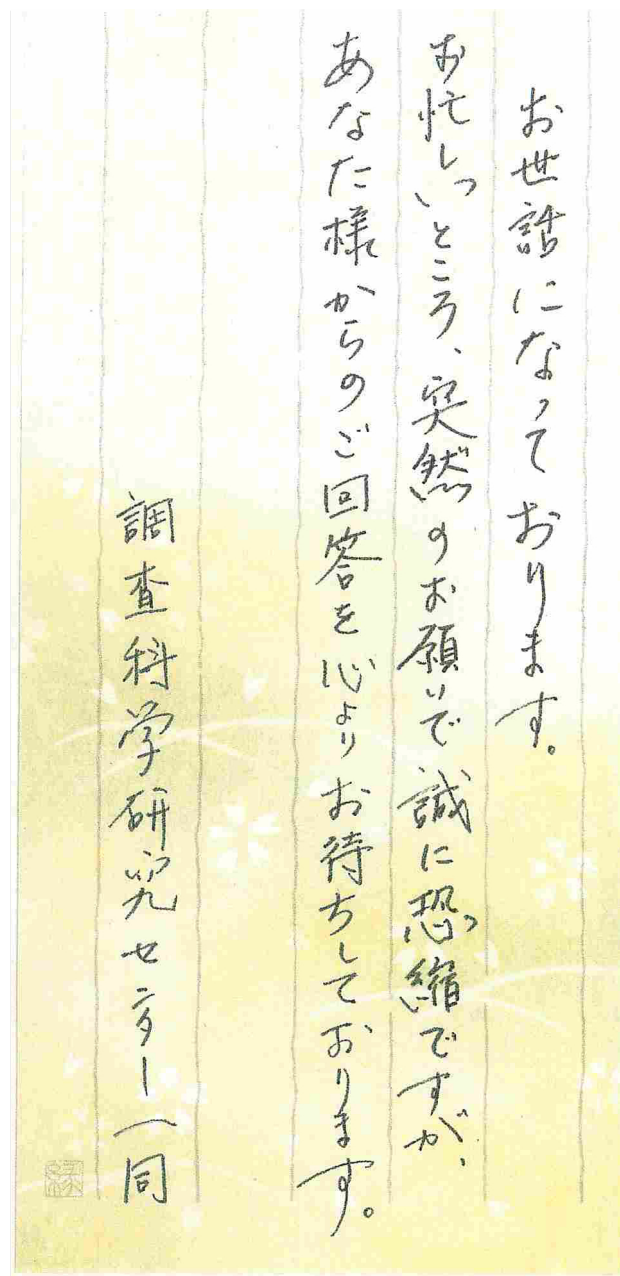 お世話になっております。
お忙しいところ、突然のお願いで誠に恐縮ですが、
あなた様からのご回答を心よりお待ちしております。
調査科学研究センター一同
縁